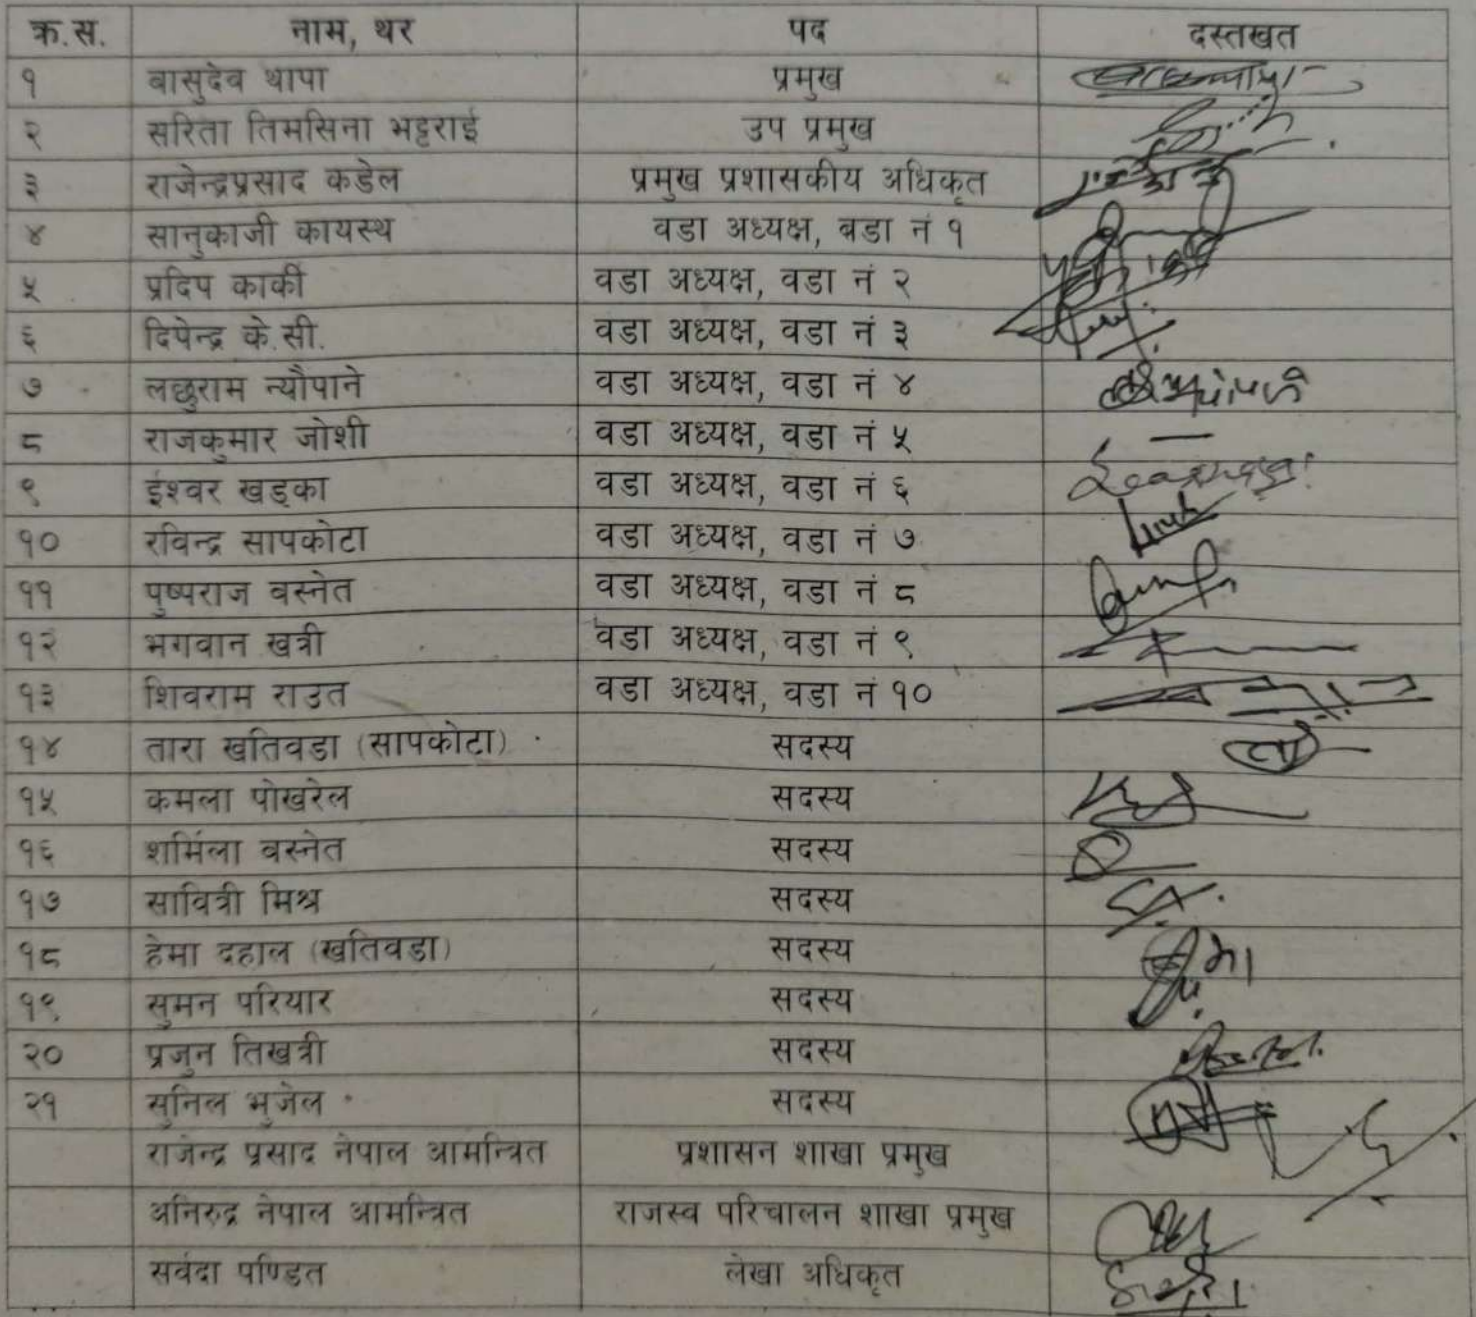 क्र.स. नाम, थर पद दस्तखत
१ बासुदेव थापा प्रमुख
२ सरिता तिमसिना भट्टराई उप प्रमुख
३ राजेन्द्रप्रसाद कडेल प्रमुख प्रशासकीय अधिकृत
४ सानुकाजी कायस्थ वडा अध्यक्ष, बडा नं १
५ प्रदिप कार्की वडा अध्यक्ष, वडा नं २
६ दिपेन्द्र के.सी. वडा अध्यक्ष, वडा नं ३
७ लछुराम न्यौपाने वडा अध्यक्ष, वडा नं ४
८ राजकुमार जोशी वडा अध्यक्ष, वडा नं ५
९ ईश्वर खड्का वडा अध्यक्ष, वडा नं ६
१० रविन्द्र सापकोटा वडा अध्यक्ष, वडा नं ७
११ पुष्पराज वस्नेत वडा अध्यक्ष, वडा नं ८
१२ भगवान खत्री वडा अध्यक्ष, वडा नं ९
१३ शिवराम राउत वडा अध्यक्ष, वडा नं १०
१४ तारा खतिवडा (सापकोटा) सदस्य
१५ कमला पोखरेल सदस्य
१६ शर्मिला वस्नेत सदस्य
१७ सावित्री मिश्र सदस्य
१८ हेमा दहाल (खतिवडा) सदस्य
१९ सुमन परियार सदस्य
२० प्रजुन तिखत्री सदस्य
२१ सुनिल भुजेल सदस्य
राजेन्द्र प्रसाद नेपाल आमन्त्रित प्रशासन शाखा प्रमुख
अनिरुद्र नेपाल आमन्त्रित राजस्व परिचालन शाखा प्रमुख
सर्वदा पण्डित लेखा अधिकृत